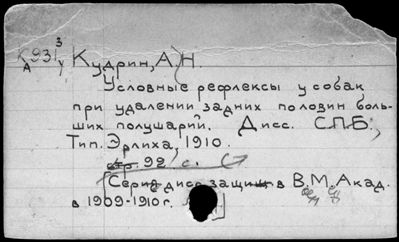 А 931 3/у Кудрин, А. Н.
Условные рефлексы у собак
при удалении задних половин боль-
ших полушарий. Дисс. С.П.Б.,
Тип. Эрлиха, 1910.
стр. 92 с.
[Серия дисс. защищ в В.М. Акад.
в 1909-1910 г.